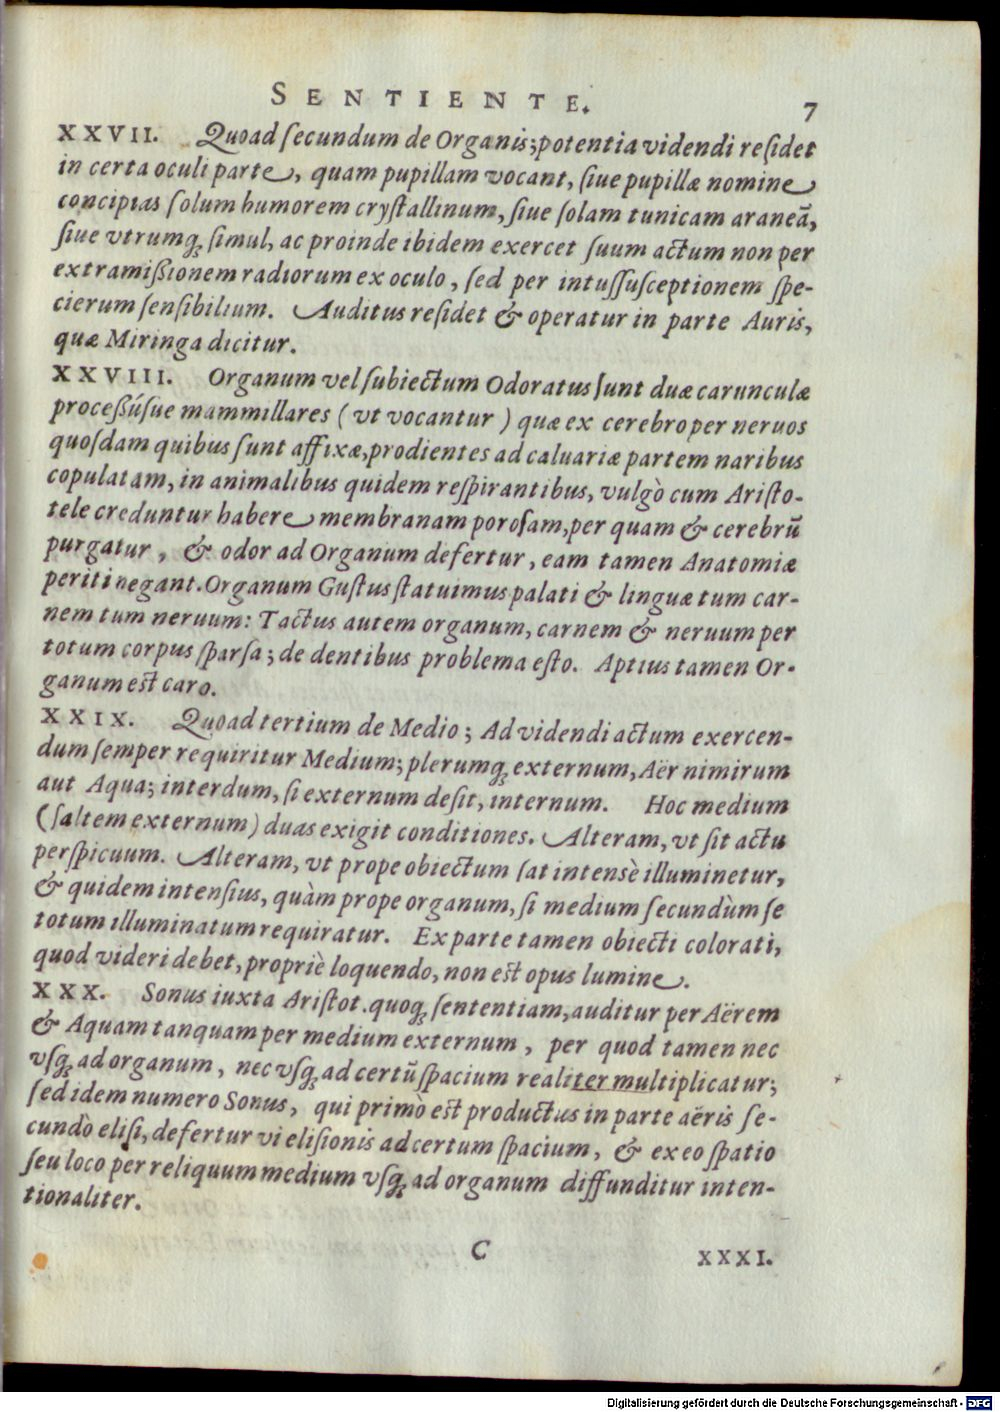 SENTIENTE. 7
XXVII. Quoad ſecundum de Organis; potentia videndi reſidet
in certa oculi parte, quam pupillam vocant, ſiue pupillæ nomine
concipias ſolum humorem cryſtallinum, ſiue ſolam tunicam araneā,
ſiue vtrumq́ꝫ ſimul, ac proinde ibidem exercet ſuum actum non per
extramißionem radiorum ex oculo, ſed per intuſſuſceptionem ſpe-
cierum ſenſibilium. Auditus reſidet & operatur in parte Auris,
quæ Miringa dicitur.
XXVIII. Organum vel ſubiectum Odoratus ſunt duæ carunculæ
proceßúſue mammillares (vt vocantur) quæ ex cerebro per neruos
quoſdam quibus ſunt affixæ, prodientes ad caluariæ partem naribus
copulatam, in animalibus quidem reſpirantibus, vulgò cum Ariſto-
tele creduntur habere membranam poroſam, per quam & cerebrū
purgatur, & odor ad Organum defertur, eam tamen Anatomiæ
periti negant. Organum Guſtus ſtatuimus palati & linguæ tum car-
nem tum neruum: Tactus autem organum, carnem & neruum per
totum corpus ſparſa; de dentibus problema eſto. Aptius tamen Or-
ganum eſt caro.
XXIX. Quoad tertium de Medio; Ad videndi actum exercen-
dum ſemper requiritur Medium; plerumq́ꝫ externum, Aër nimirum
aut Aqua; interdum, ſi externum deſit, internum. Hoc medium
(ſaltem externum) duas exigit conditiones. Alteram, vt ſit actu
perſpicuum. Alteram, vt prope obiectum ſat intensè illuminetur,
& quidem intenſius, quàm prope organum, ſi medium ſecundùm ſe
totum illuminatum requiratur. Ex parte tamen obiecti colorati,
quod videri debet, propriè loquendo, non eſt opus lumine.
XXX. Sonus iuxta Ariſtot. quoq́ꝫ ſententiam, auditur per Aërem
& Aquam tanquam per medium externum, per quod tamen nec
vſq́ꝫ ad organum, nec vſq́ꝫ ad certū ſpacium realiter multiplicatur;
ſed idem numero Sonus, qui primò eſt productus in parte aëris ſe-
cundò eliſi, defertur vi eliſionis ad certum ſpacium, & ex eo ſpatio
ſeu loco per reliquum medium vſq́ꝫ ad organum diffunditur inten-
tionaliter.
C XXXI.
Digitalisierung gefördert durch die Deutsche Forschungsgemeinschaft - DFG